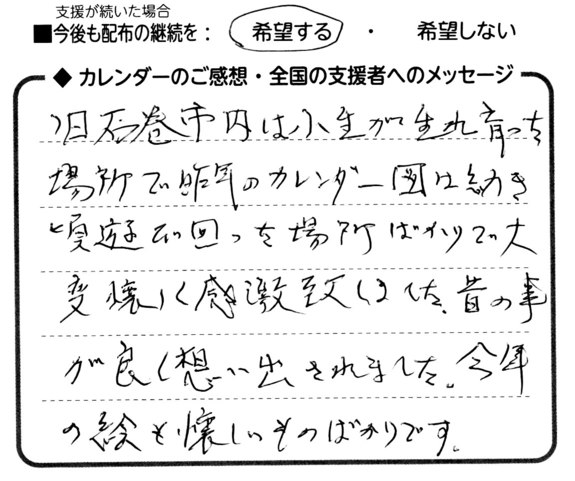 支援が続いた場合
■今後も配布の継続を： 希望する ・ 希望しない
◆ カレンダーのご感想・全国の支援者へのメッセージ
旧石巻市内は小生が生れ育った
場所で昨年のカレンダー図は幼き
頃遊び回った場所ばかりで大
変懐しく感激致しました。昔の事
が良く想い出されました。今年
の絵も懐しいものばかりです。